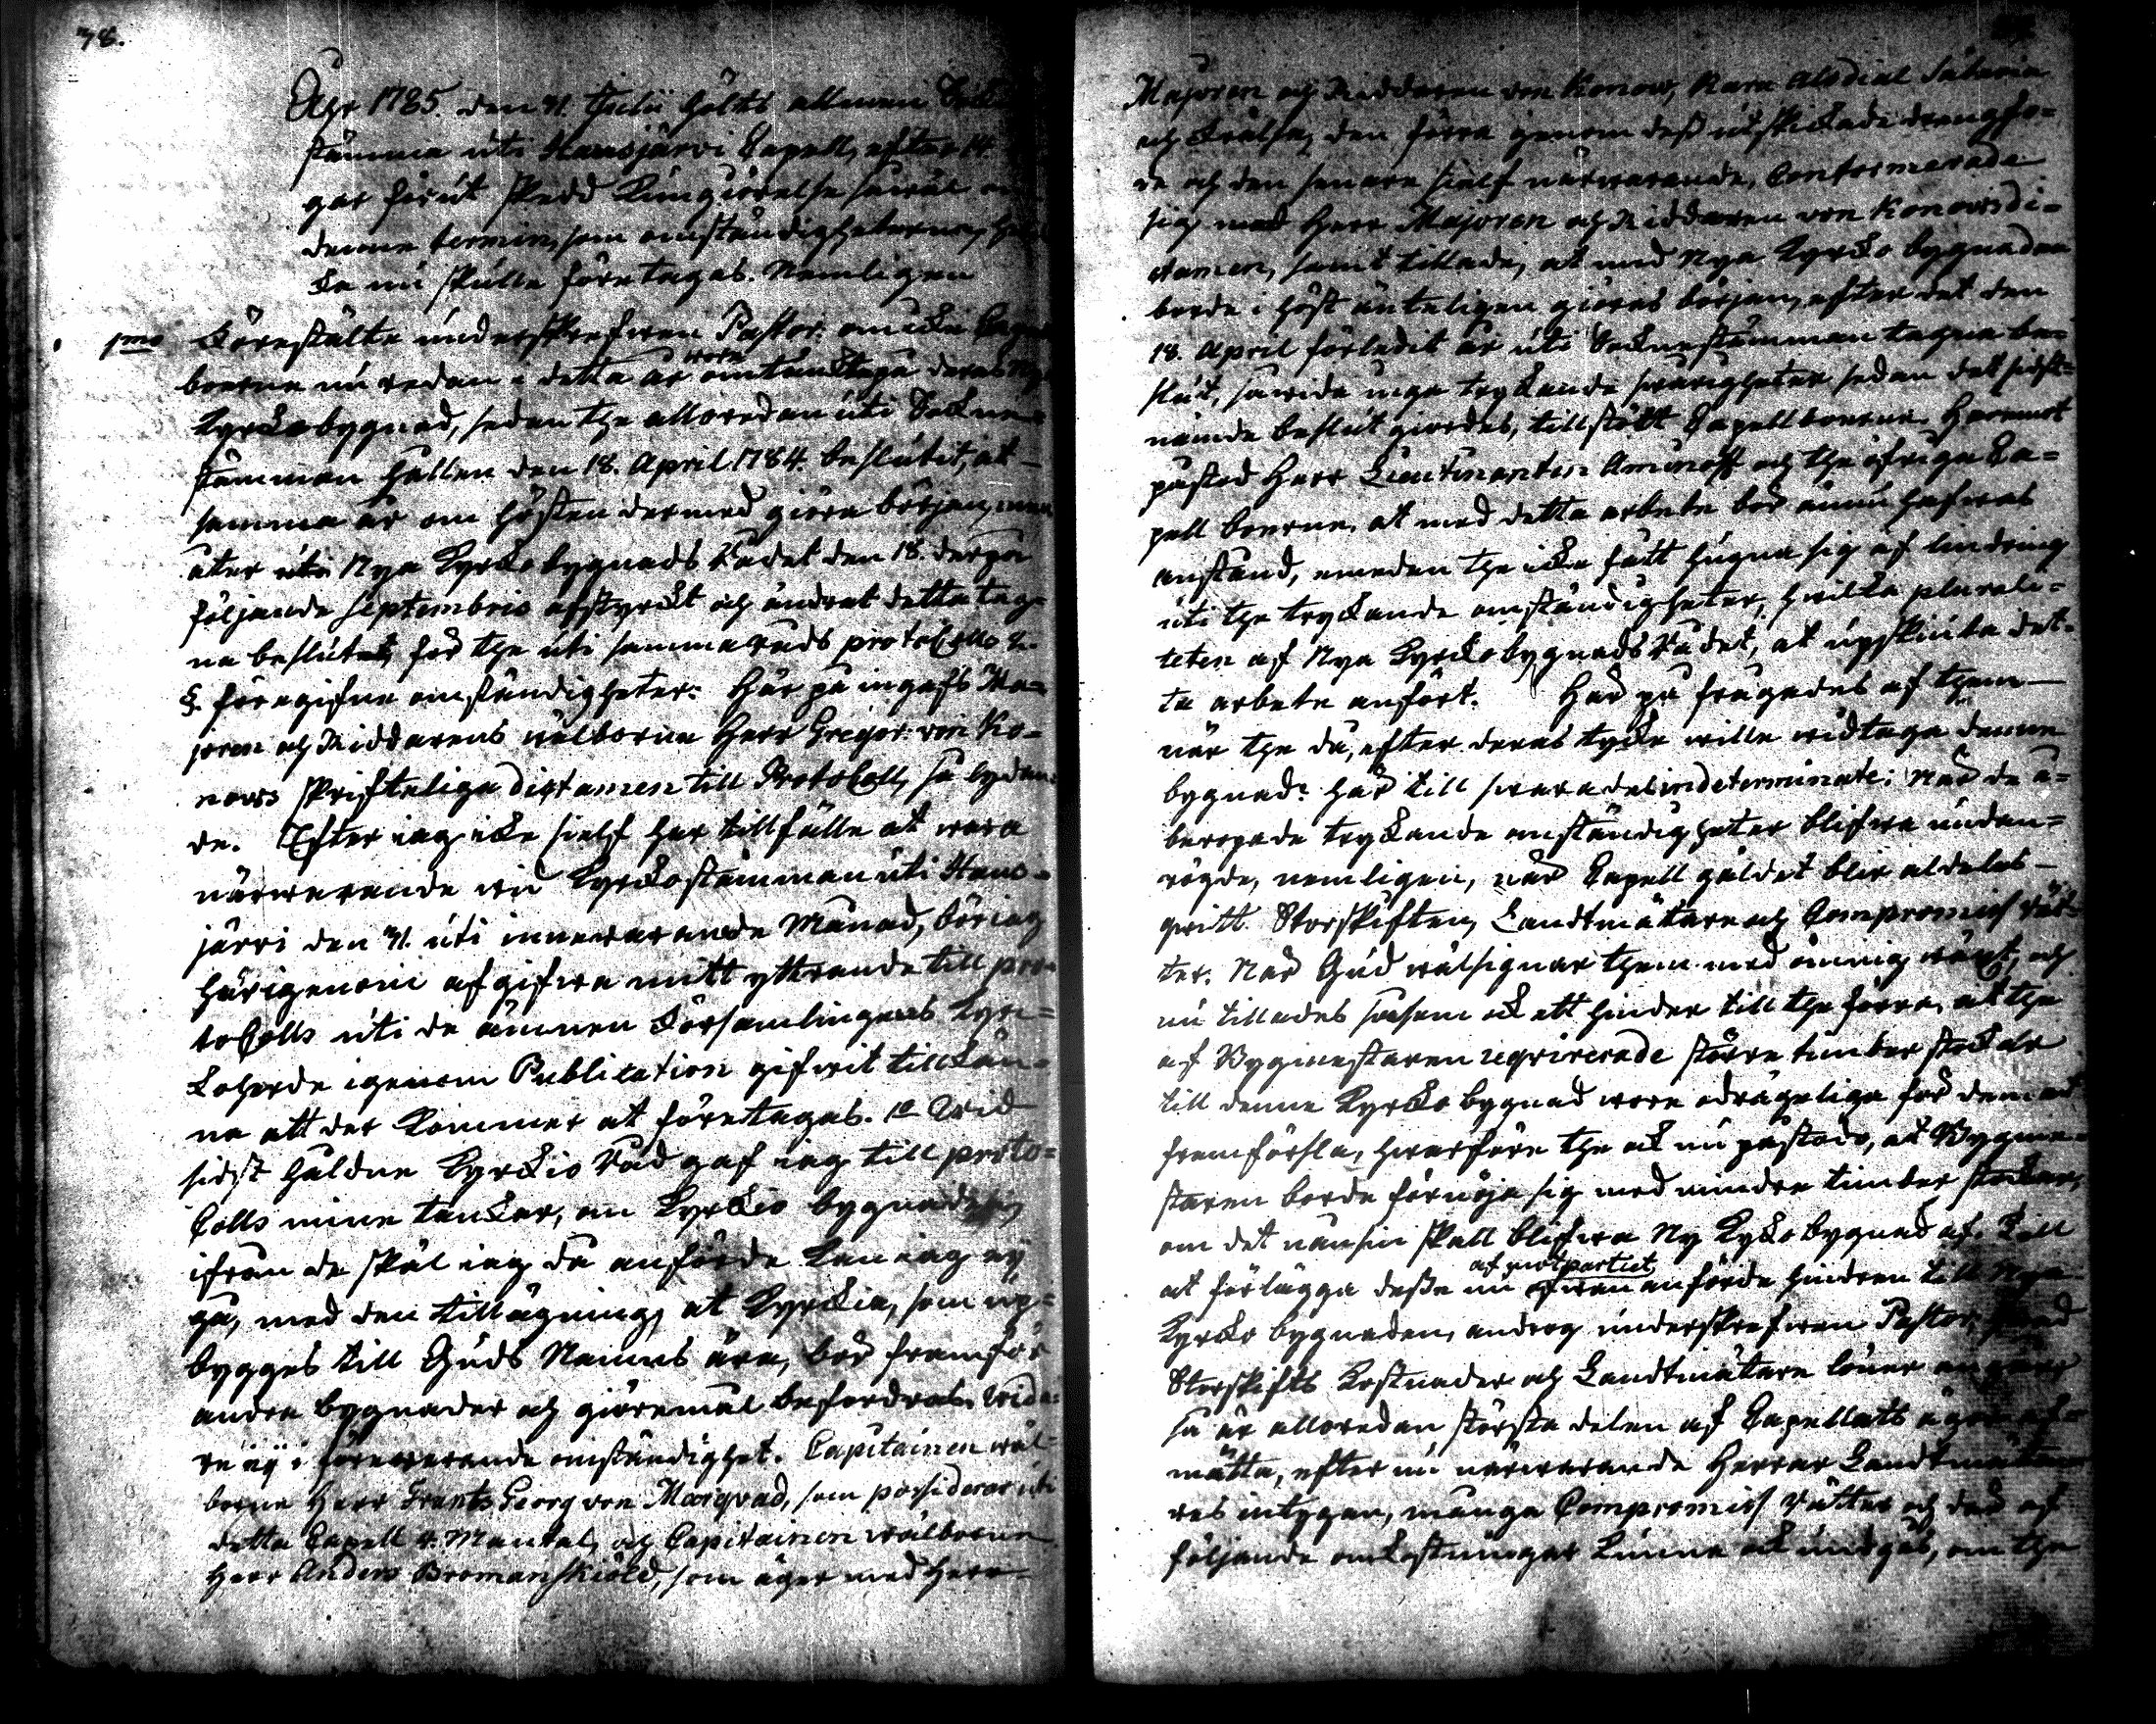 78.
Åhr 1785. den 31. Julii hölts allmen
stämma uti Hausjärvi Capell, efter 14.
gar förut skedd Kungiörelse såwäl om
denna termin, som omständigheterna,
ka nu skulle företagas. Nemligen
1mo Förestälte underskrefwen Pastor: om icke Capell
boerne nu redan i detta år wore omtänckta på deras Nya
Kyrkobygnad, sedan the alloredan uti Sockne-
stämman hallen den 18. April 1784. beslutit, at
samma år om hösten dermed giöra början, men
åter uti Nya Kyrkobygnads Rådet den 18. derpå
följande Septembris afstyrckt och ändrat detta tag-
na beslutet, för the uti samma råds protocolls 2.
§. föregifne omständigheter. Här på ingafs Ma-
joren och Riddarens wälborne Herr Gregor: von Ko-
nows skrifteliga dictamen till Protocoll, så lydan-
de. Efter iag icke sielf har tillfälle at wara
närwarande wid Kyrckostämman uti Haus-
järvi den 31. uti innewarande Månad, bör iag
härigenom afgifwa mitt yttrande till pro-
tocolls uti de ämnen Församlingenes Kyr-
koherde igenom Publication gifwit tillkän-
na att der kommer at företagas. 1o Wid
sidst hållne Kyrckio Råd gaf iag till proto-
colls mine tanckar, om Kyrckio bygnaden,
ifrån de skäl iag då anförde kan iag ey
gå, med den tillägning, at Kyrckia, som up-
bygges till Guds Namns ära, bör framför
andra bygnader och giöremål befordras. Wida-
re ey i förewarande omständighet. Capitainen wäl-
borne Herr Frants Georg von Marqvad, som possiderar uti
detta Capell 4. Mantal, och Capitainen wälborne
Herr Anders Bromanskiöld, som äger med Herr
Majoren och Riddaren von Konow, Kara Alodial Säteria
och Frälse, den förra genom dess utskickade drengfo-
re och den senare sielf närwarande, Conformerade
sig med Herr Majoren och Riddaren von Konows di-
ctamen, samt tillade, at med Nya Kyrko bygnaden
borde i höst änteligen giöras början, efter det den
18. April förledit år uti Sockne stämman tagna be-
slut, såwida inga tryckande swårigheter sedan det sidst-
nämde beslut giordes, tillstött Capellboerne. Häremot
påstod Herr Lieutnanten Aminoff och the öfriga Ca-
pell boerne, at med detta arbete bör ännu hafwas
anstånd, emedan the icke fått hugna sig af lindring
uti the tryckande omständigheter, hwilka plurali-
teten af Nya Kyrckobygnads Rådet, at upskiuta det-
ta arbete anfört. Här på frågades af them
när the då, efter deras tycke wille widtaga denne
bygnad? här till swarades indeterminate: När de å-
beropade tryckande omständigheter blifwa undan-
rögde, nemligen, när Capell gäldet blir aldeles
qwitt. Storskiften, Landtmätare och Compromiss rät-
ter. När Gud wälsignar them med ömnig wäxt, och
nu tillades såsom ock ett hinder till the förra, at the
af Bygmestaren requirerade större timber stockar
till denne Kyrko bygnad wore odrägeliga för dem at
framförsla, hwarföre the ock nu påstodo, at Bygme-
staren borde förnöja sig med mindre timber stockar,
om det nånsin skall blifwa Ny Kyrkobygnad af. Till
at förlägga desse nu af motpartiet ofwan anförde hindren till Nya
Kyrko bygnaden, androg underskrefwen Pastor: hwad
Storskifts Kostnader och Landtmätare löner angår
så är alloredan största delen af Capellets ägor af-
mätta, efter nu närwarande Herrar Landtmäta-
res intygan, många Compromiss rätter och der af
följande omkostningar kunna ock undgås, om the